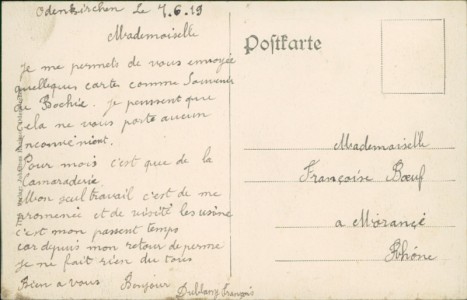 Odenkirchen le 7.6.19
Mademoiselle
Je me permets de vous envoyée
quelleques carte comme Souvenir
de Bochie. je peussent que
cela ne vous porte aucun
inconvénient.
Pour mois c'est que de la
Camaraderie
Mon seul travail c'est de me
promenée et de visité les usine
c'est mon passent temps
car depuis mon retour de perme
je ne fait rien du tous
Bien a vous Bonjour
Dublany François
Postkarte
Mademoiselle
Françoise Bœuf
a Morancé
Rhône